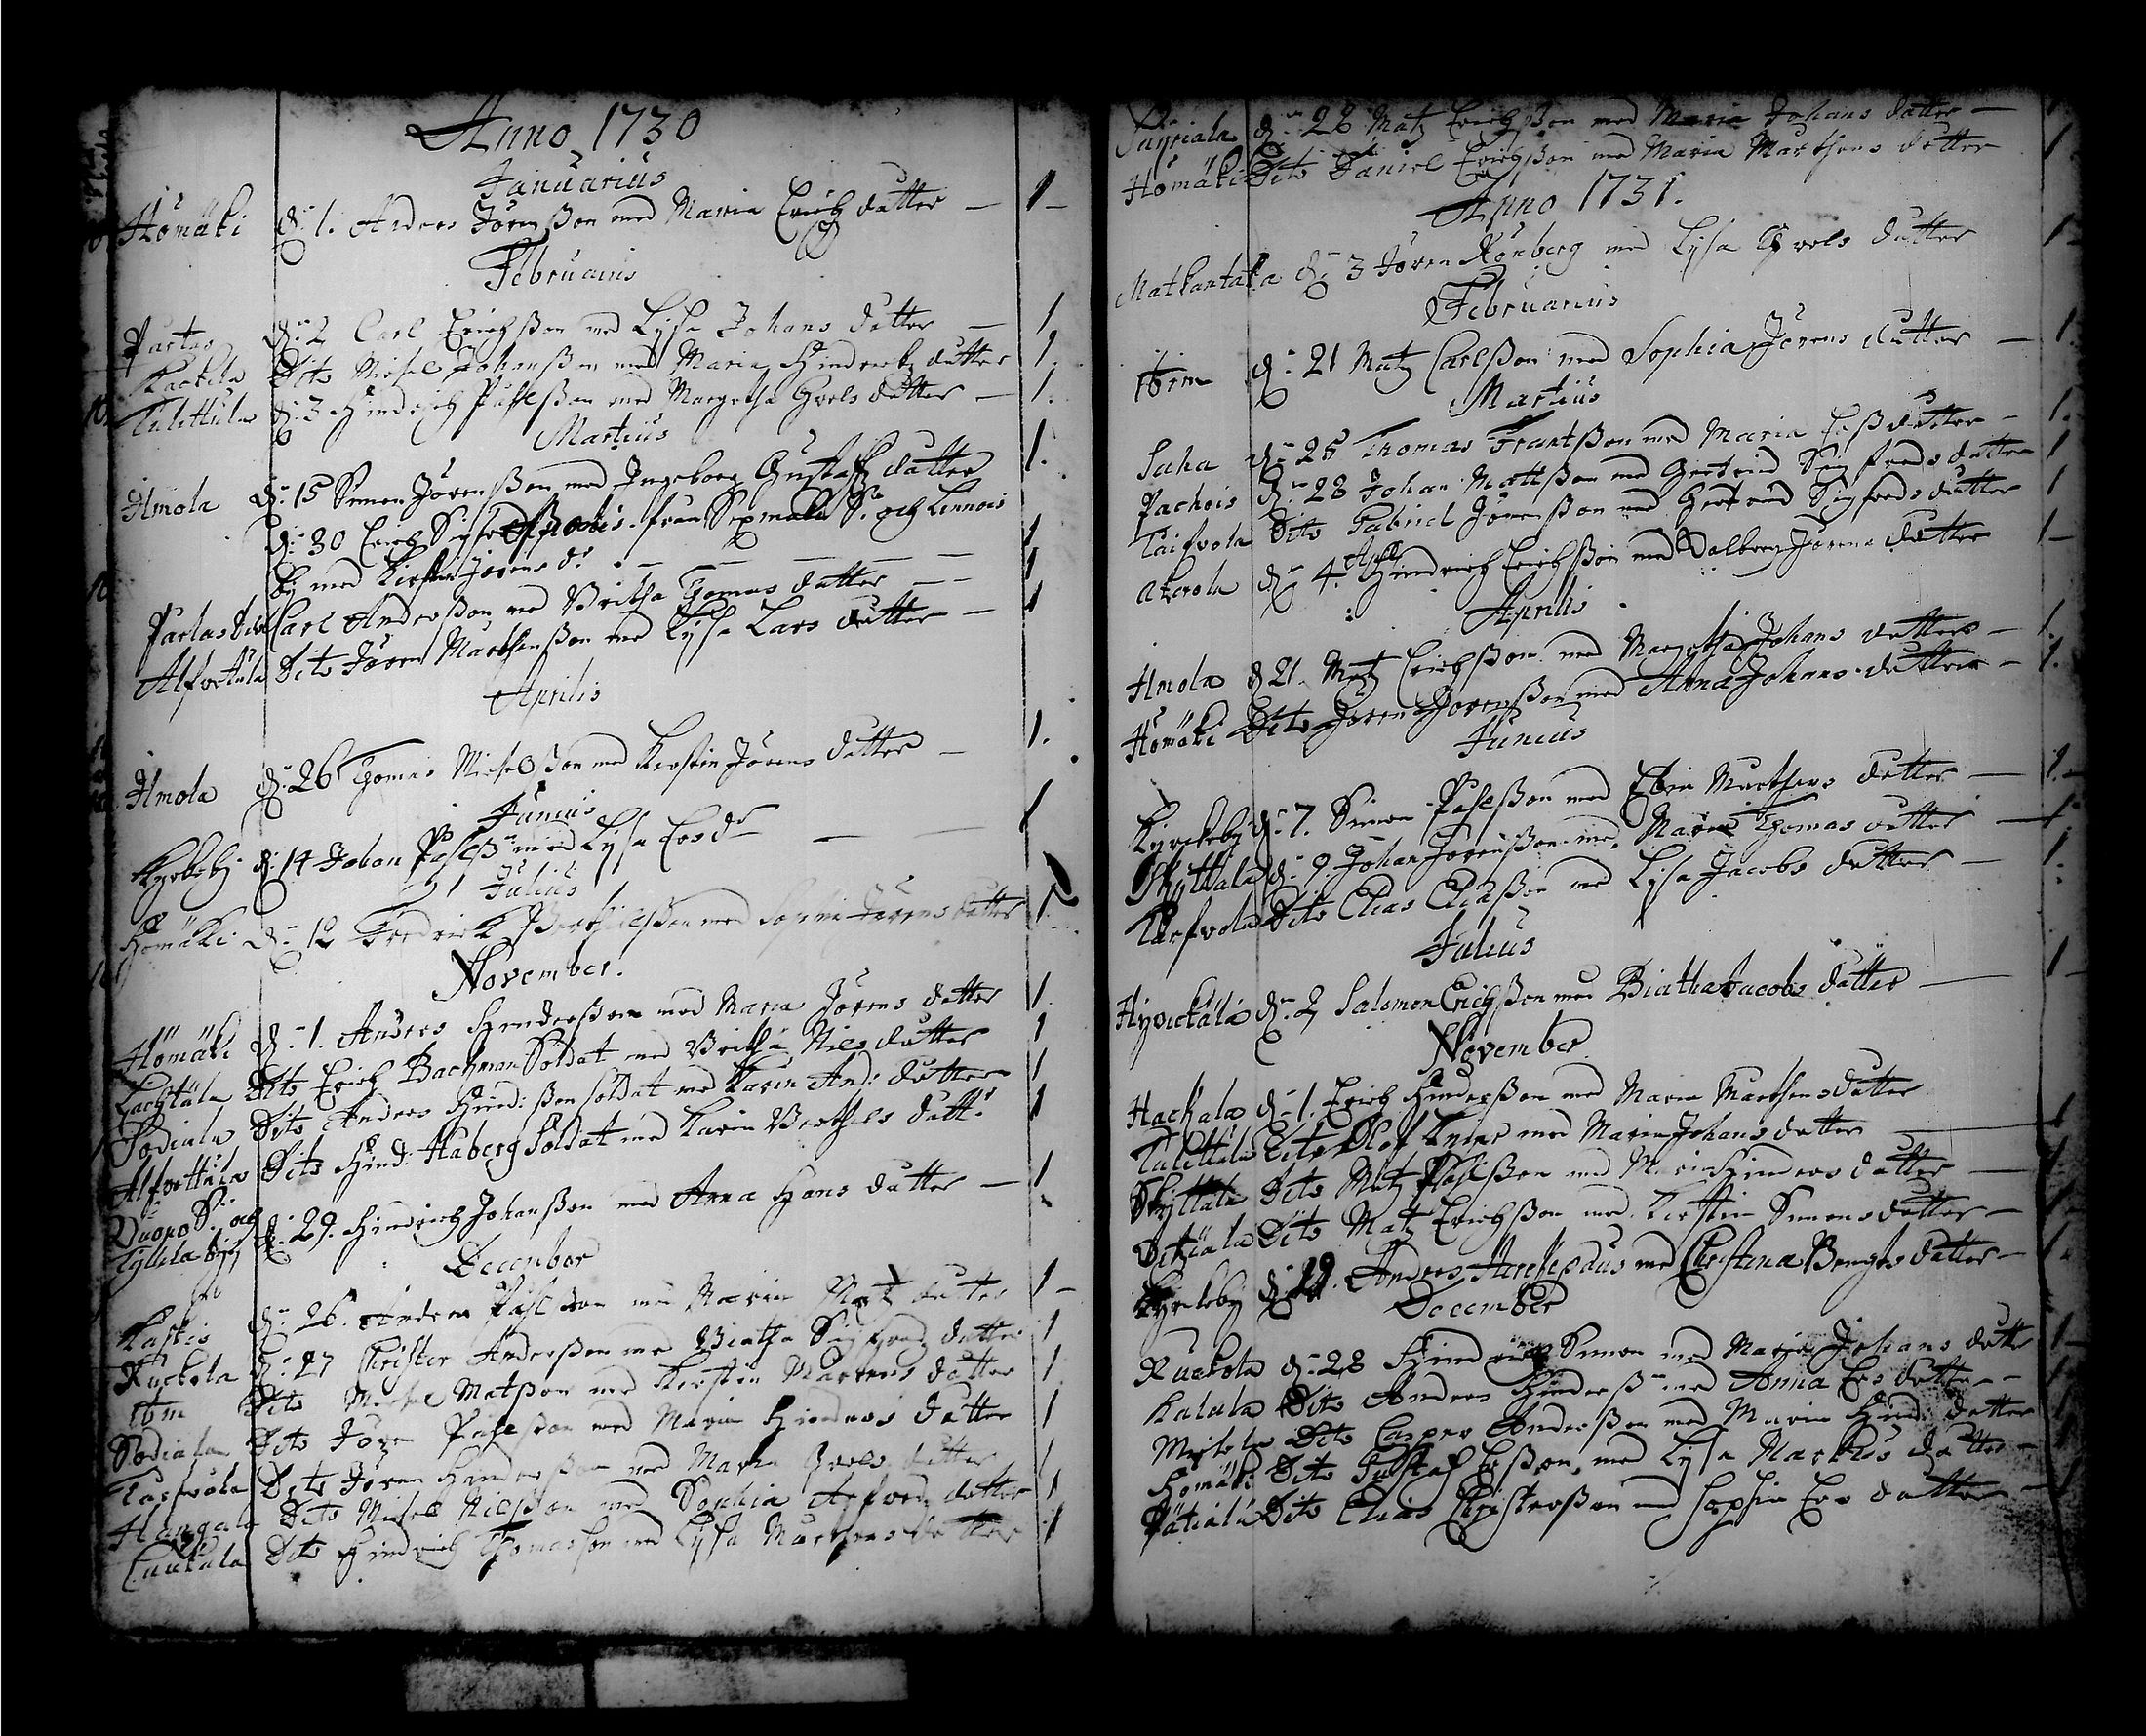 Anno 1730
Januarius
Homäki d: 1. Anders Jörenßon med Maria Erichz datter — 1 —
Februarius
Partas d: 2 Carl Erichßon med Lysa Johans datter — 1
Kackila Dito Michel Johanßon med Maria Hindrichz datter 1.
Tulettula d: 3 Hindrich Påhlßon med Margetha Grels datter — 1.
Martius
Ilmola d: 15 Simon Jörenßon med Ingeborg Gustafz datter 1.
d: 30 Erich från S: och Lennois
by med Kirstin Jörens d: 1
Partas Dito Carl Anderßon med Britha Thomas datter — 1
Alfvettula Dito Jören Marthenßon med Lysa Lars datter — 1
Aprilis
Ilmola d: 26 Thomas Michelßon med Kirstin Jörens datter — 1.
Junius
Kyrkeby d: 14 Johan Påhlß: med Lysa Ers dr — 1
Julius
Homäki d: 12 Fredrick Berthilßon med Sophia Jörens datter 1.
November.
Homäki d: 1. Anders Hinderßon med Maria Jörens datter 1
Lachtala Dito Erich Bachman Soldat med Britha Nils datter 1
Sodiala Dito Anders Hind: ßon soldat med Karin And: datter 1
Alfvettula Dito Hind: Haberg Soldat med Karin Berthils datt: 1
Vuoro S: och
by d: 29. Hindrich Johanßon med Anna Hans datter — 1
December
Kastis d: 26. Anders Påhlßon med Karin Matz datter 1 —
Ruckola d: 27 Christer Anderßon med Britha Sigfredz datter 1
Ibm Dito Michel Matßon med Kirstin Martens datter 1
Sodiala Dito Jören Påhlßon med Maria Hinders datter 1
Tarfvola Dito Jören Hinderßon med Maria Grels datter 1
Hangala Dito Michel Nilßon med Sophia datter 1
Laukala Dito Hindrich Thomasson med Lysa Marthens datter 1
d: 28 Matz Erichßon med Maria Johans datter — 1
Homäki Dito Daniel Erichßon med Maria Marthens datter 1
Anno 1731.
Matkantaka d: 3 Jören Rönberg med Lysa Grels datter 1 —
Februarius
Ibm d: 21 Matz Carlßon med Sophia Jörens datter — 1.
Martius
Saha d: 25 Thomas Frantßon med Maria Erß datter — 1.
Pachois d: 28 Johan Mattßon med Gertrud Sigfreds datter 1
Taifvola Dito Gabriel Jörenßon med Gertrud Sigfreds datter 1
Akerola d: 4. Hindrich Erichßon med Valborg Jörens datter 1 —
Aprilis
Ilmola d 21. Matz Erichßon med Margetha Johans datter — 1.
Homäki Dito Jören Jörenßon med Anna Johans datter — 1.
Junius
Kyrckeby d: 7. Simon Påhlßon med Elin Marthens datter — 1. —
Skyttala d: 9. Johan Jörenßon med Maria Thomas datter — 1
Tarfvola Dito Elias Eliaßon med Lysa Jacobs datter — 1.
Julius
Hyvickala d: 2 Salomon Erichßon med Birtha Jacobs datter — 1 —
November
Hackala d: 1. Erich Hinderßon med Maria Marthens datter
Tulettula Dito Olof Knipe med Maria Johans datter — 1
Skyttala Dito Matz Påhlßon med Maria Hinders datter — 1
Dito Matz Erichßon med Kirstin Simons datter — 1
Kyrckeby d: 29. Anders med Christina Bengts datter — 1
December
Ruckola d: 28 Hindrich Simon med Maria Johans datte 1 —
Kalala Dito Anders Hinderß: med Anna Ers datter — 1
Dito Casper Anderßon med Maria Hind: datter
Homäki Dito Gustaf Erßon, med Lysa Markus datter —
Pätiala Dito Elias Christerßon med Sophia Ers datter —